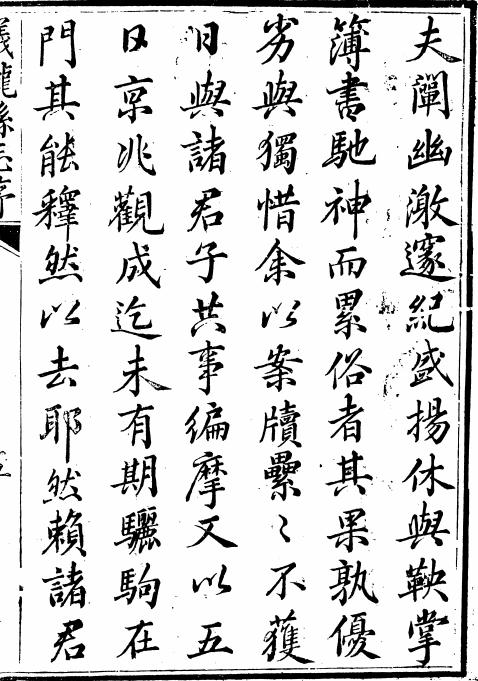 夫闡幽激邃紀盛揚休與鞅掌
簿書馳神而累俗者其果孰優
劣與獨惜余以案牘纍〻不獲
日與諸君子共事編摩又以五
日京兆觀成迄未有期驪駒在
門其能釋然以去耶然賴諸君